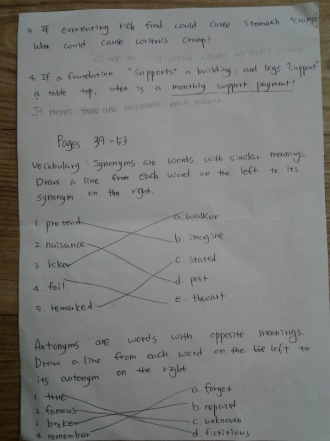 3. If overeating rich food could cause stomach "cramps"
What could cause writer's cramp?
4. If a foundation "supports" a building, and legs "support"
a table top, what is a monthly support payment?
It means there are payments each month.
Pages 39-53
Vocabulary: Synonyms are words with similar meanings.
Draw a line from each word on the left to its
synonym on the right.
1. pretend
a. walker
2. nuisance
b. imagine
3. hiker
c. stated
4. foil
d. pest
5. remarked
e. thwart
Antonyms are words with opposite meanings.
Draw a line from each word on the left to
its antonym on the right
1. true
a. forget
2. famous
b. repaird
3. broken
c. unknown
4. remember
d. fictitious